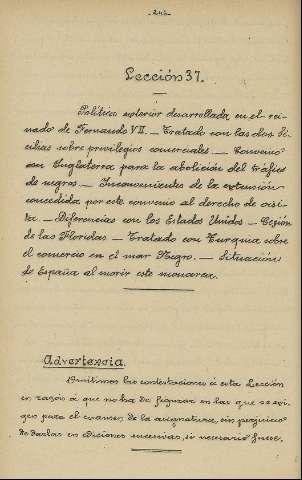 -246-
Lección 37.
Política exterior desarrollada en el rei-
nado de Fernando VII. — Tratado con las dos Si-
cilias sobre privilegios comerciales. — Convenio
con Inglaterra para la abolición del tráfico
de negros. — Inconvenientes de la extensión
concedida por este convenio al derecho de visi-
ta. — Diferencias con los Estados Unidos. — Cesión
de las Floridas. — Tratado con Turquia sobre
el comercio en el mar Negro. — Situación
de España al morir este monarca.
Advertencia.
Omitimos las contestaciones á esta Lección
en razón á que no ha de figurar en las que se exi-
gen para el examen de la asignatura, sin perjuicio
de darlas en ediciones sucesivas, si necesario fuese.